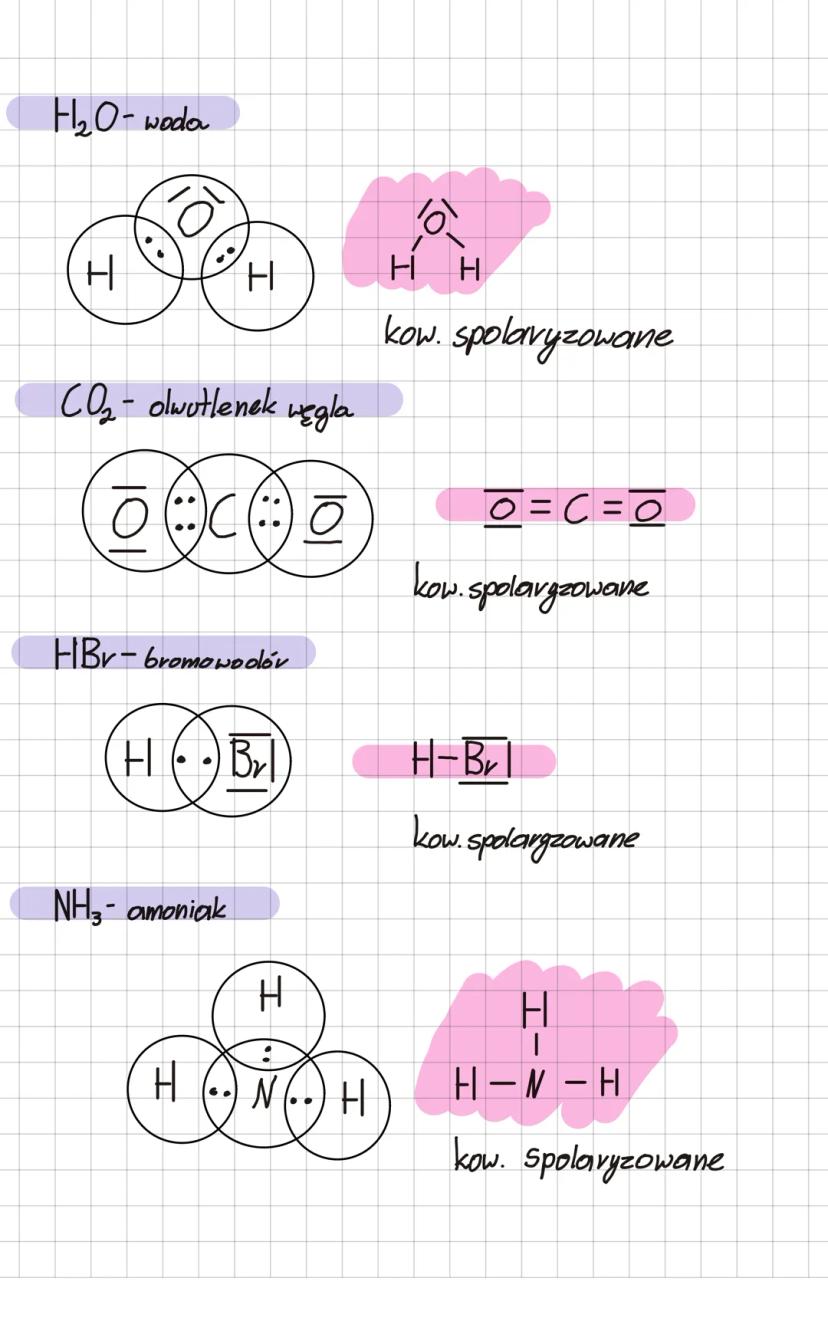 H₂O - woda
O
H H
O
H H
kow. spolaryzowane
CO₂ - dwutlenek węgla
O C O
O = C = O
kow. spolaryzowane
HBr - bromowodór
H Br|
H-Br|
kow. spolaryzowane
NH₃ - amoniak
H
H N H
H
|
H - N - H
kow. spolaryzowane